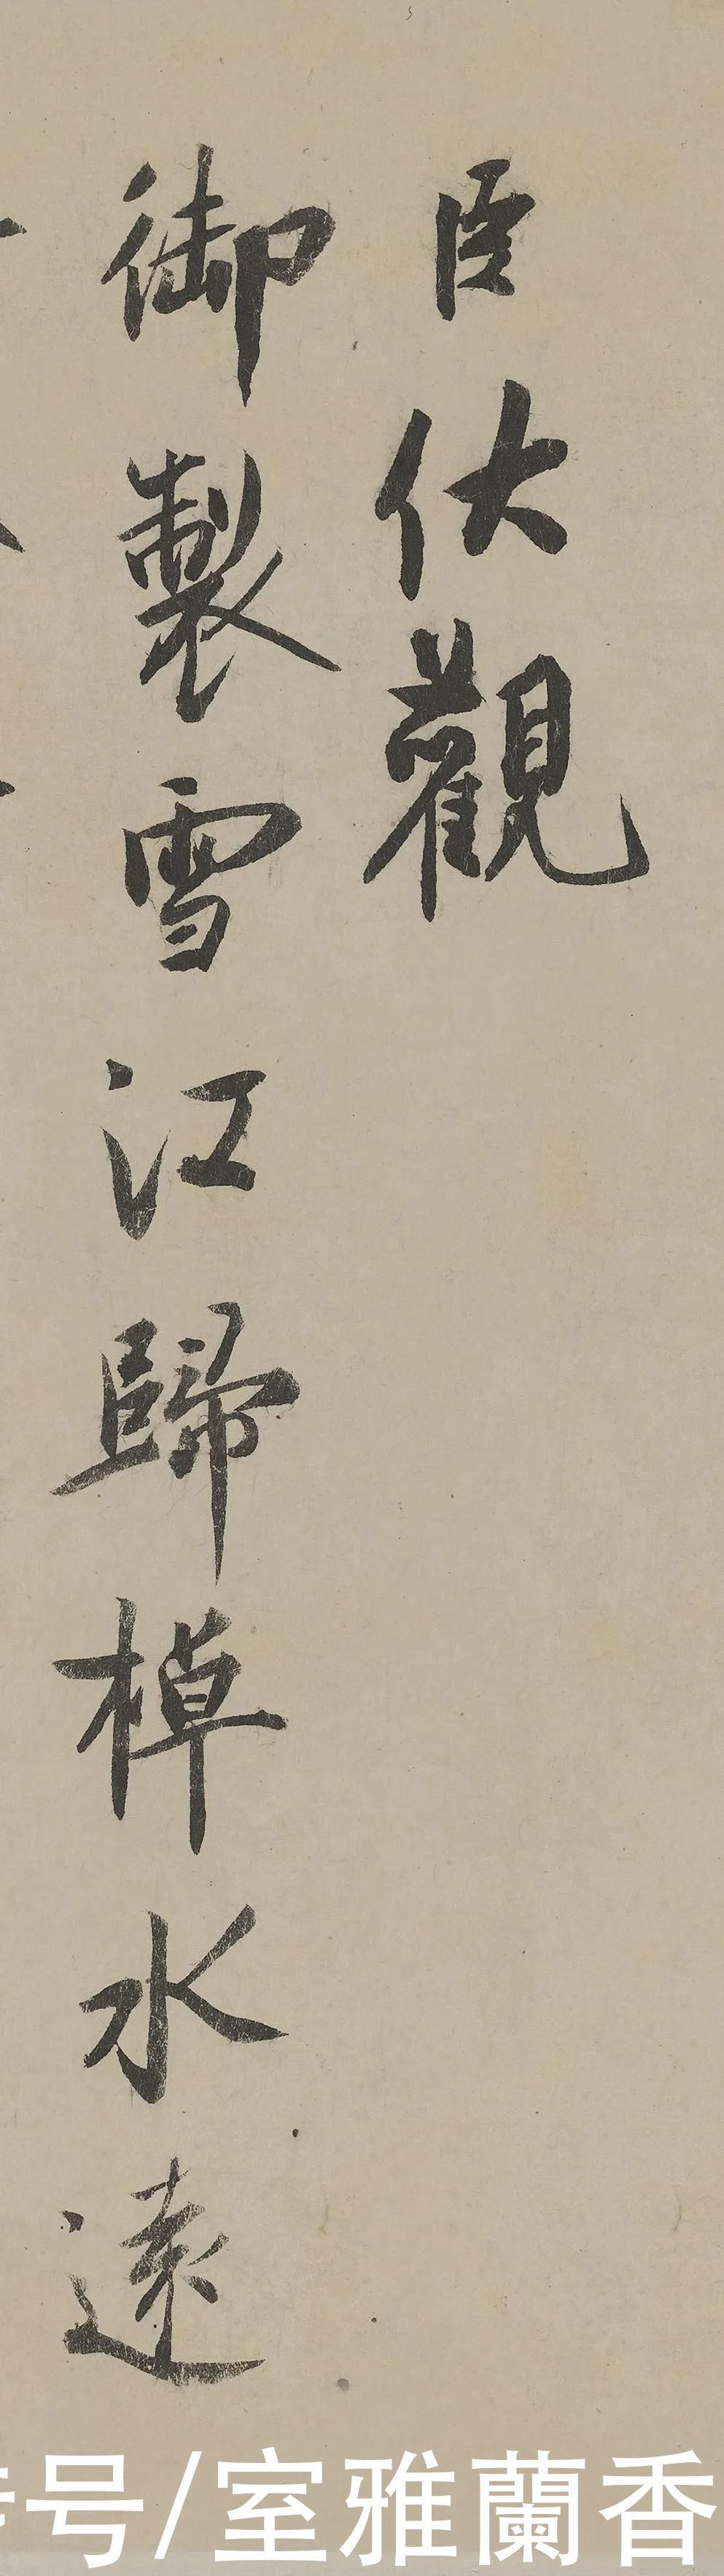 臣伏觀
御製雪江歸棹水遠
号/室雅蘭香